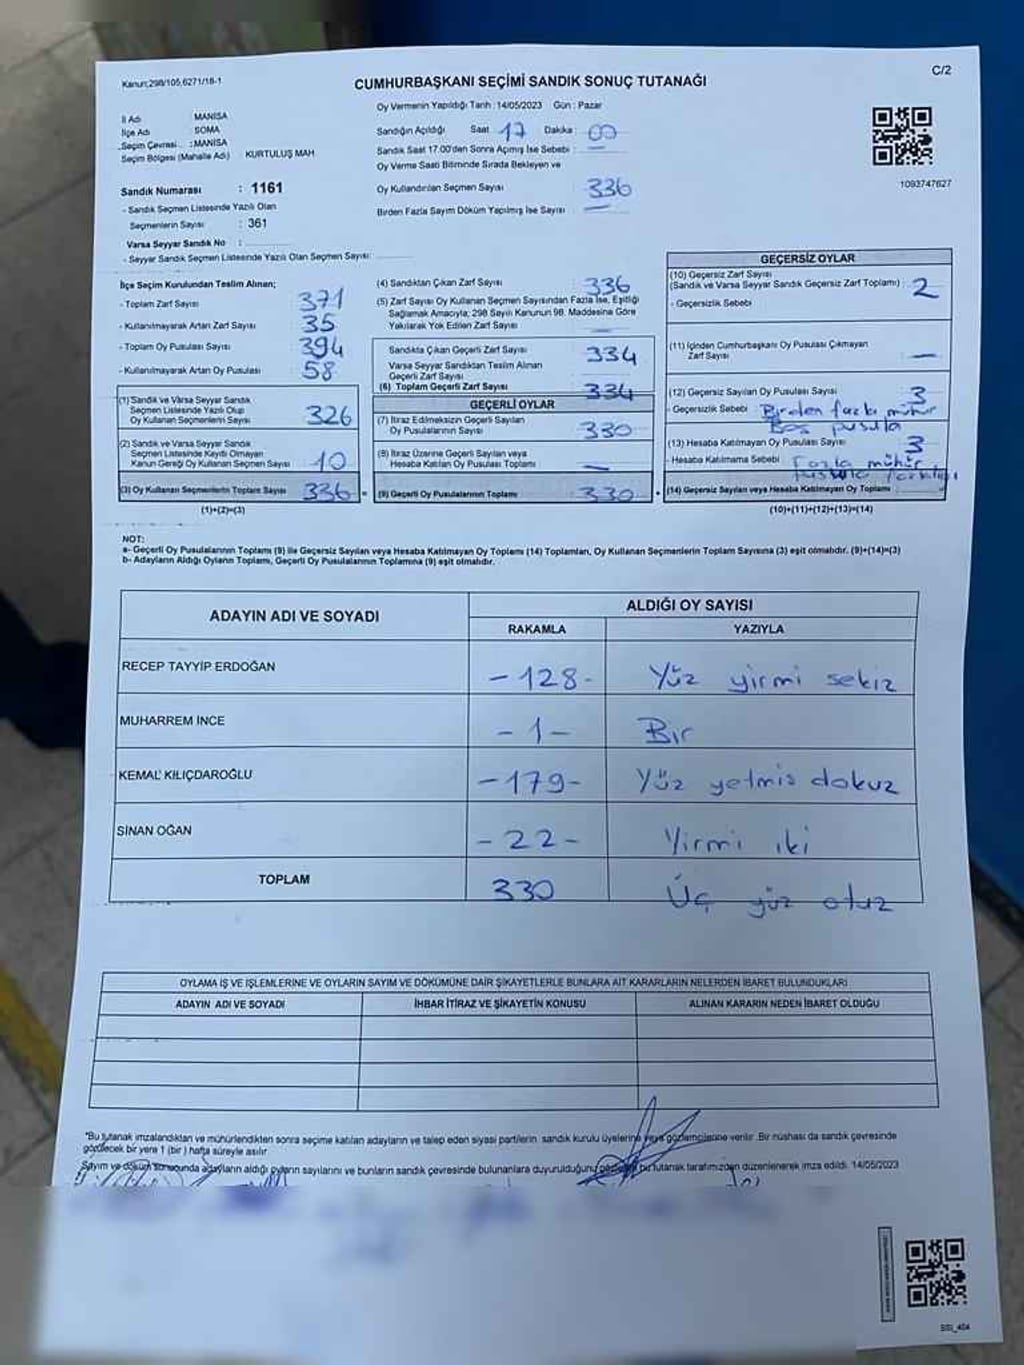 Kanun;298/105,6271/18-1
CUMHURBAŞKANI SEÇİMİ SANDIK SONUÇ TUTANAĞI
C/2
Oy Vermenin Yapıldığı Tarih : 14/05/2023 Gün : Pazar
İl Adı MANİSA
İlçe Adı SOMA
Seçim Çevresi : MANİSA
Seçim Bölgesi (Mahalle Adı) KURTULUŞ MAH
Sandığın Açıldığı Saat 17 Dakika : 00
Sandık Saat 17.00'den Sonra Açımış İse Sebebi : —
Oy Verme Saati Bitiminde Sırada Bekleyen ve
Oy Kullandırılan Seçmen Sayısı 336
Birden Fazla Sayım Döküm Yapılmış İse Sayısı —
1093747627
Sandık Numarası : 1161
- Sandık Seçmen Listesinde Yazılı Olan
Seçmenlerin Sayısı : 361
Varsa Seyyar Sandık No :
- Seyyar Sandık Seçmen Listesinde Yazılı Olan Seçmen Sayısı:
İlçe Seçim Kurulundan Teslim Alınan;
- Toplam Zarf Sayısı 371
- Kullanılmayarak Artan Zarf Sayısı 35
- Toplam Oy Pusulası Sayısı 394
- Kullanılmayarak Artan Oy Pusulası 58
(1) Sandık ve Varsa Seyyar Sandık
Seçmen Listesinde Yazılı Olup
Oy Kullanan Seçmen Sayısı 326
(2) Sandık ve Varsa Seyyar Sandık
Seçmen Listesinde Kayıtlı Olmayan
Kanun Gereği Oy Kullanan Seçmen Sayısı 10
(3) Oy Kullanan Seçmenlerin Toplam Sayısı 336
(1)+(2)=(3)
(4) Sandıktan Çıkan Zarf Sayısı 336
(5) Zarf Sayısı Oy Kullanan Seçmen Sayısından Fazla İse, Eşitliği
Sağlamak Amacıyla; 298 Sayılı Kanunun 98. Maddesine Göre
Yakılarak Yok Edilen Zarf Sayısı —
Sandıkta Çıkan Geçerli Zarf Sayısı 334
Varsa Seyyar Sandıktan Teslim Alınan
Geçerli Zarf Sayısı
(6) Toplam Geçerli Zarf Sayısı 334
GEÇERLİ OYLAR
(7) İtiraz Edilmeksizin Geçerli Sayılan
Oy Pusulalarının Sayısı 330
(8) İtiraz Üzerine Geçerli Sayılan veya
Hesaba Katılan Oy Pusulası Toplamı —
(9) Geçerli Oy Pusulalarının Toplamı 330
GEÇERSİZ OYLAR
(10) Geçersiz Zarf Sayısı
(Sandık ve Varsa Seyyar Sandık Geçersiz Zarf Toplamı) : 2
- Geçersizlik Sebebi
(11) İçinden Cumhurbaşkanı Oy Pusulası Çıkmayan
Zarf Sayısı —
(12) Geçersiz Sayılan Oy Pusulası Sayısı 3
- Geçersizlik Sebebi Birden fazla mühür
Boş pusula
(13) Hesaba Katılmayan Oy Pusulası Sayısı 3
- Hesaba Katılmama Sebebi Fazla mühür
(14) Geçersiz Sayılan veya Hesaba Katılmayan Oy Toplamı
(10)+(11)+(12)+(13)=(14)
NOT:
a- Geçerli Oy Pusulalarının Toplamı (9) ile Geçersiz Sayılan veya Hesaba Katılmayan Oy Toplamı (14) Toplamları, Oy Kullanan Seçmenlerin Toplam Sayısına (3) eşit olmalıdır. (9)+(14)=(3)
b- Adayların Aldığı Oyların Toplamı, Geçerli Oy Pusulalarının Toplamına (9) eşit olmalıdır.
ADAYIN ADI VE SOYADI
ALDIĞI OY SAYISI
RAKAMLA YAZIYLA
RECEP TAYYİP ERDOĞAN - 128 - Yüz yirmi sekiz
MUHARREM İNCE - 1 - Bir
KEMAL KILIÇDAROĞLU - 179 - Yüz yetmis dokuz
SİNAN OĞAN - 22 - Yirmi iki
TOPLAM 330 Üç yüz otuz
OYLAMA İŞ VE İŞLEMLERİNE VE OYLARIN SAYIM VE DÖKÜMÜNE DAİR ŞİKAYETLERLE BUNLARA AİT KARARLARIN NELERDEN İBARET BULUNDUKLARI
ADAYIN ADI VE SOYADI İHBAR İTİRAZ VE ŞİKAYETİN KONUSU ALINAN KARARIN NEDEN İBARET OLDUĞU
*Bu tutanak imzalandıktan ve mühürlendikten sonra seçime katılan adayların ve talep eden siyasi partilerin sandık kurulu üyelerine veya gözlemcilerine verilir. Bir nüshası da sandık çevresinde
görülecek bir yere 1 (bir ) hafta süreyle asılır.
Sayım ve döküm sonucunda adayların aldığı oyların sayılarını ve bunların sandık çevresinde bulunanlara duyurulduğunu bu tutanak tarafımızdan düzenlenerek imza edildi. 14/05/2023
SSI_404